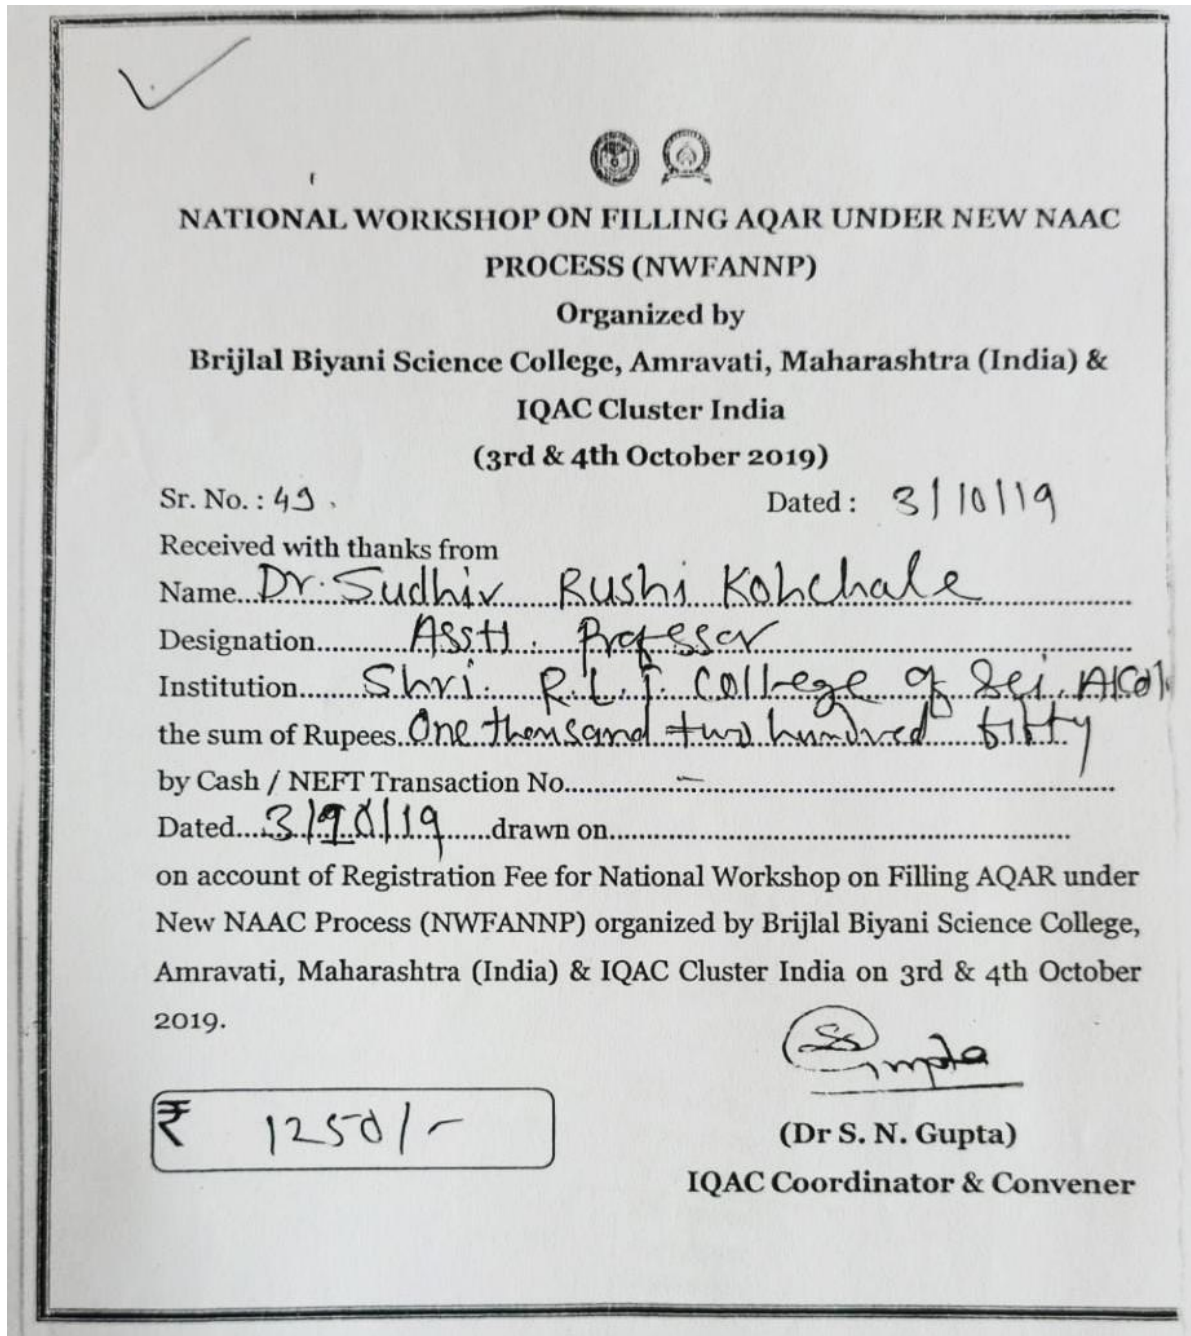 NATIONAL WORKSHOP ON FILLING AQAR UNDER NEW NAAC
PROCESS (NWFANNP)
Organized by
Brijlal Biyani Science College, Amravati, Maharashtra (India) &
IQAC Cluster India
(3rd & 4th October 2019)
Sr. No. : 49. Dated : 3/10/19
Received with thanks from
Name Dr. Sudhir Rushi Kohchale
Designation Asstt. Professor
Institution Shri. R.L.T. College of Sci. Akol
the sum of Rupees One thousand two hundred fifty
by Cash / NEFT Transaction No. –
Dated 3/10/19 drawn on
on account of Registration Fee for National Workshop on Filling AQAR under
New NAAC Process (NWFANNP) organized by Brijlal Biyani Science College,
Amravati, Maharashtra (India) & IQAC Cluster India on 3rd & 4th October
2019.
₹ 1250/-
(Dr S. N. Gupta)
IQAC Coordinator & Convener